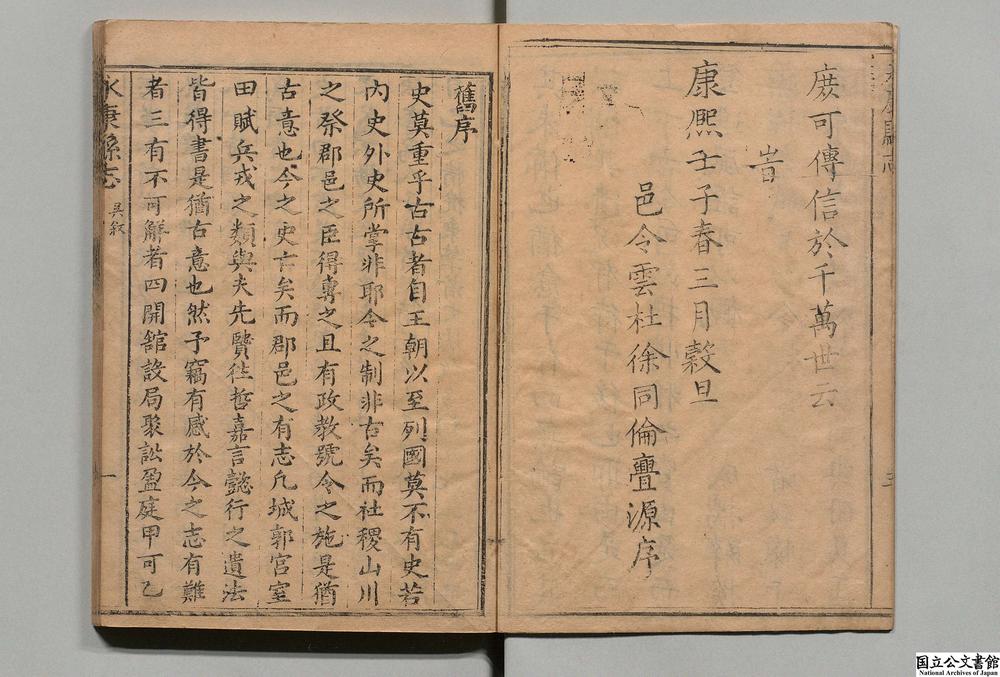 庶可傳信於千萬世云
旹
康熙壬子春三月穀旦
邑令雲杜徐同倫亹源序
三
舊序
史莫重乎古古者自王朝以至列國莫不有史若
內史外史所掌非耶今之制非古矣而社稷山川
之祭郡邑之臣得專之且有政教號令之施是猶
古意也今之史亡矣而郡邑之有志凡城郭宮室
田賦兵戎之類與夫先賢往哲嘉言懿行之遺法
皆得書是猶古意也然予竊有感於今之志有難
者三有不可觧者四開舘設局聚訟盈庭甲可乙
永康縣志
吳叙
一
国立公文書館
National Archives of Japan